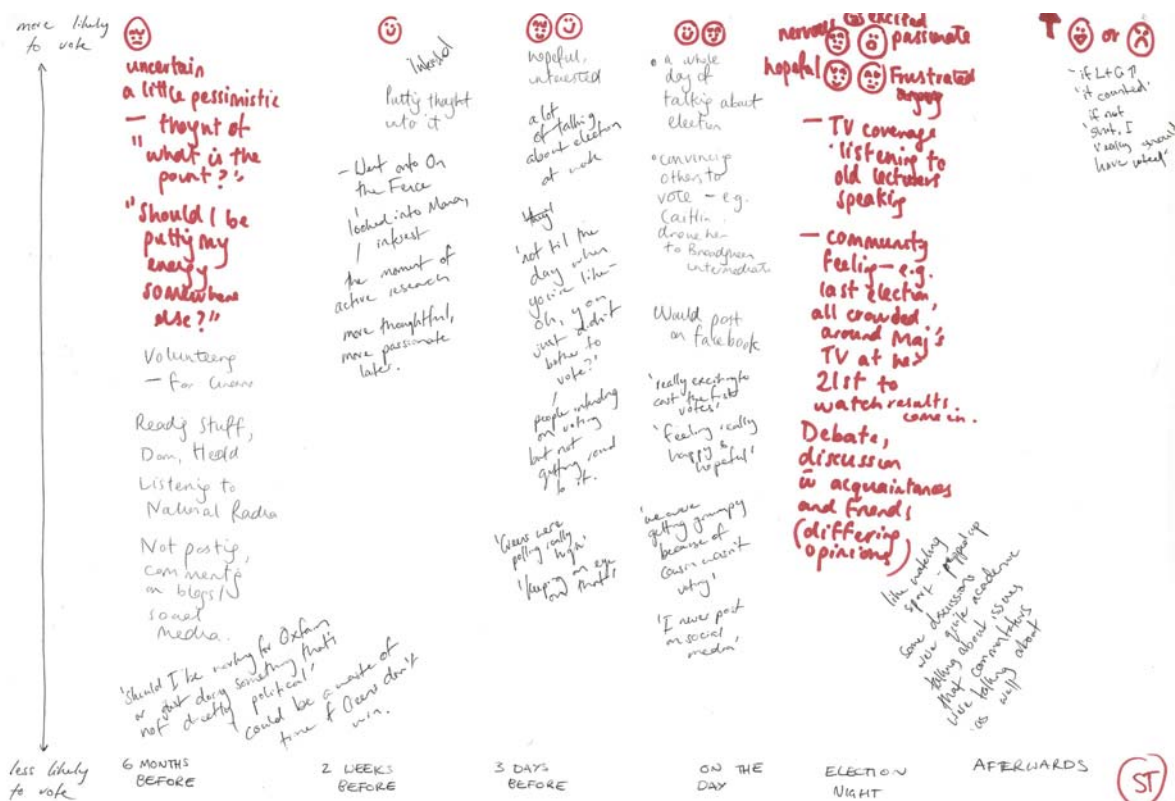 more likely
to vote
uncertain
a little pessimistic
— thought of
"what is the
point?"
"Should I be
putting my
energy
somewhere
else?"
Volunteering
— for Greens
Reading Stuff,
Dom, Hedd
Listening to
National Radio
Not posting,
comments
on blogs/
social
media.
'should I be working for Oxfam
or just doing something that's
not directly political'
could be a waste of
time if Greens don't
win.
less likely
to vote
6 MONTHS
BEFORE
interested
Putting thought
into it
- Went onto On
the Fence
looked into Mana,
interest
the moment of
active research
more thoughtful,
more passionate
later.
2 WEEKS
BEFORE
hopeful,
interested
a lot
of talking
about election
at work
'not til the
day when
you're like -
oh, you
just didn't
bother to
vote?'
people intending
on voting
but not
getting round
to it.
'Greens were
polling really
high'
'keeping an eye
on that'
3 DAYS
BEFORE
• a whole
day of
talking about
election
• convincing
others to
vote - e.g.
Caitlin
drove her
to
Intermediate
Would post
on facebook
'really exciting to
cast the first
votes'
'feeling really
happy &
hopeful'
'we were
getting grumpy
because of
cousin wasn't
voting'
'I never post
on social
media'
ON THE
DAY
nervous excited
passionate
hopeful Frustrated
angry
— TV coverage
listening to
old lecturers
speaking
— community
feeling — e.g.
last election,
all crowded
around Maj's
TV at her
21st to
watch results
come in.
Debate,
discussion
w acquaintances
and friends
(differing
opinions)
like watching
sport - pepped up
some discussions
were quite academic
talking about issues
that commentators
were talking about
as well
ELECTION
NIGHT
or
- if L+G ↑
'it counted'
if not
'shit, I
really should
have voted'
AFTERWARDS
ST